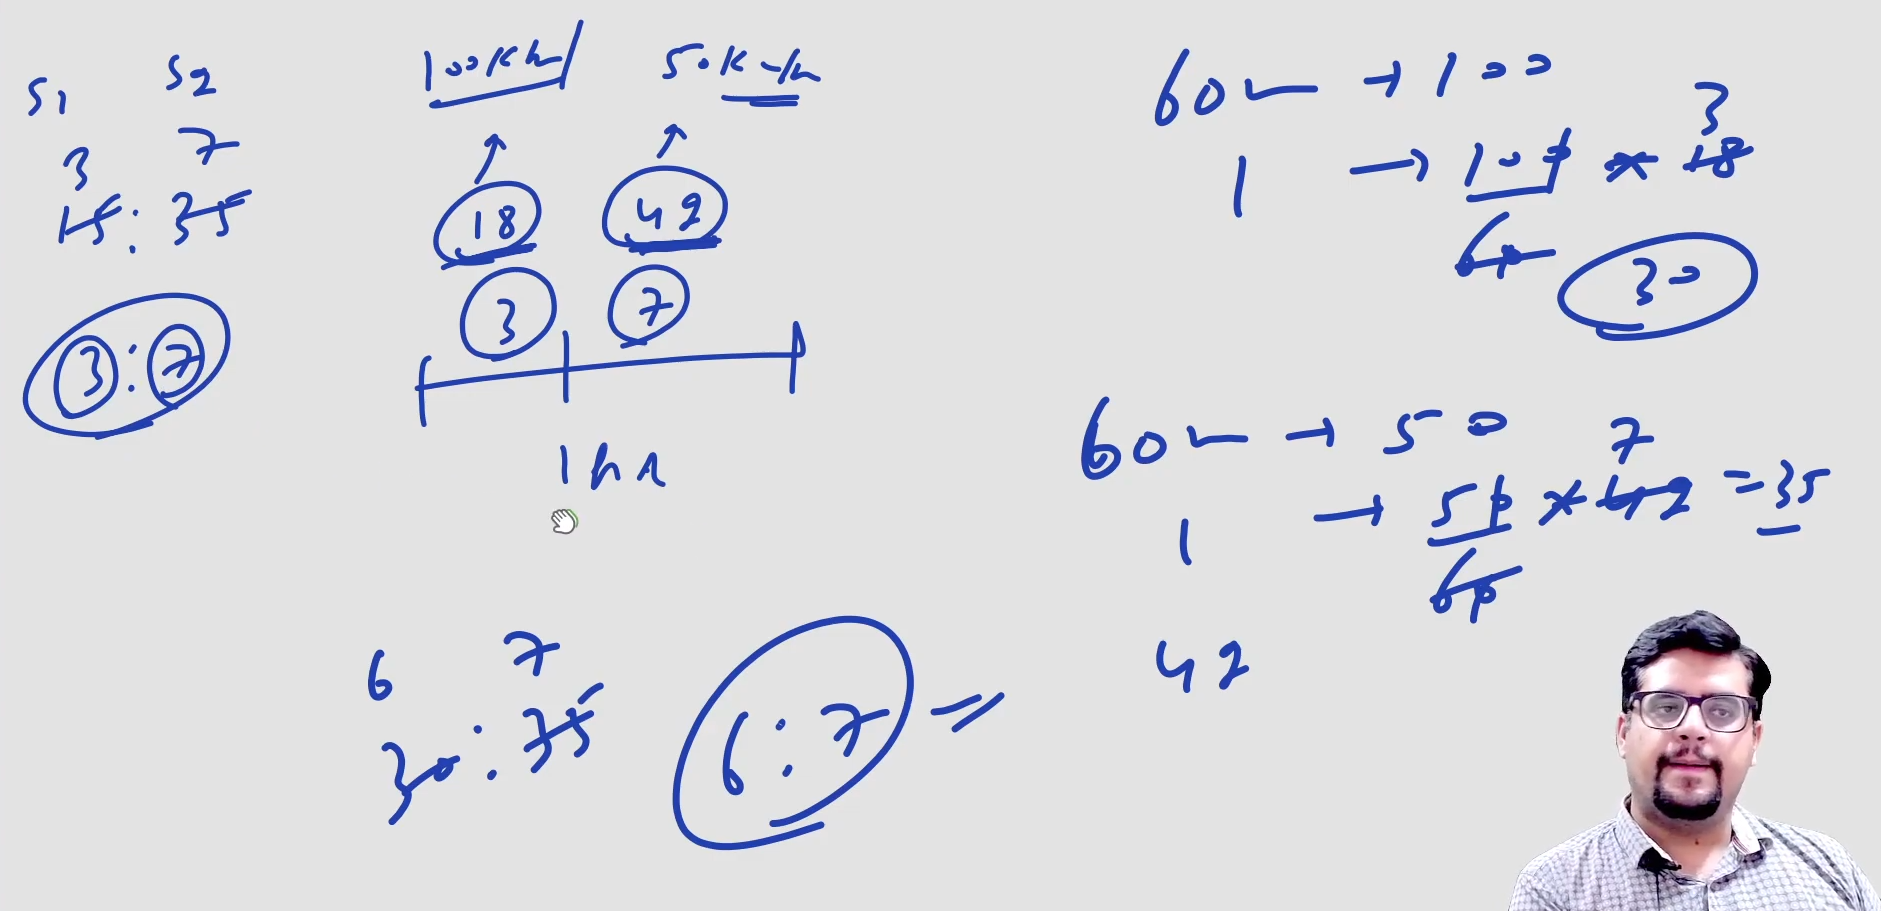 S1 S2
3 7
15 : 35
3 : 7
100 Km/ 50 Km/h
18 42
3 7
1 hr
6 7
30 : 35
6 : 7 =
60m → 100
3
1 → 100 * 18
60
30
60m → 50
7
1 → 50 * 42 = 35
60
42